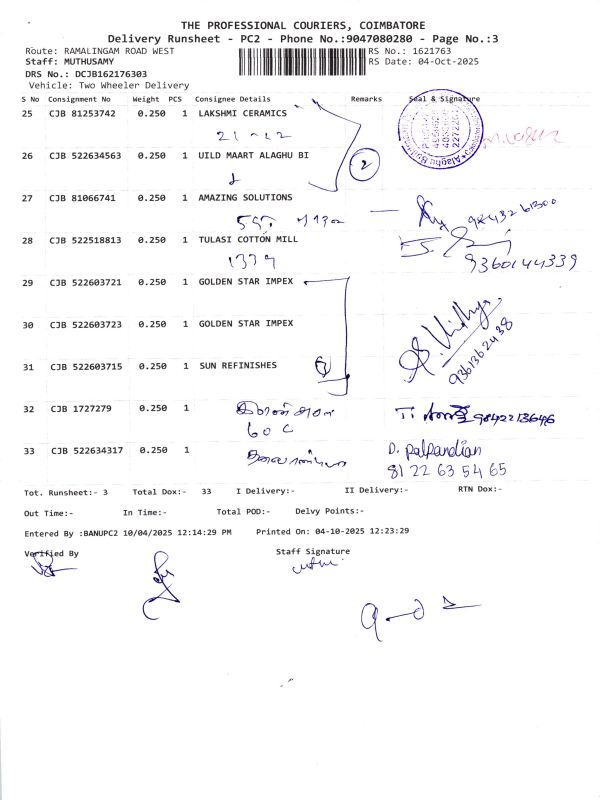 THE PROFESSIONAL COURIERS, COIMBATORE
Delivery Runsheet - PC2 - Phone No.:9047080280 - Page No.:3
Route: RAMALINGAM ROAD WEST RS No.: 1621763
Staff: MUTHUSAMY RS Date: 04-Oct-2025
DRS No.: DCJB162176303
Vehicle: Two Wheeler Delivery
S No Consignment No Weight PCS Consignee Details Remarks Seal & Signature
25 CJB 81253742 0.250 1 LAKSHMI CERAMICS
21-12
26 CJB 522634563 0.250 1 UILD MAART ALAGHU BI
2
27 CJB 81066741 0.250 1 AMAZING SOLUTIONS
28 CJB 522518813 0.250 1 TULASI COTTON MILL
9360144339
29 CJB 522603721 0.250 1 GOLDEN STAR IMPEX
30 CJB 522603723 0.250 1 GOLDEN STAR IMPEX
Vidhya
9361362438
31 CJB 522603715 0.250 1 SUN REFINISHES
32 CJB 1727279 0.250 1
60 C 9842213646
33 CJB 522634317 0.250 1 D. Palpandian
81 22 63 54 65
Tot. Runsheet:- 3 Total Dox:- 33 I Delivery:- II Delivery:- RTN Dox:-
Out Time:- In Time:- Total POD:- Delvy Points:-
Entered By :BANUPC2 10/04/2025 12:14:29 PM Printed On: 04-10-2025 12:23:29
Verified By Staff Signature